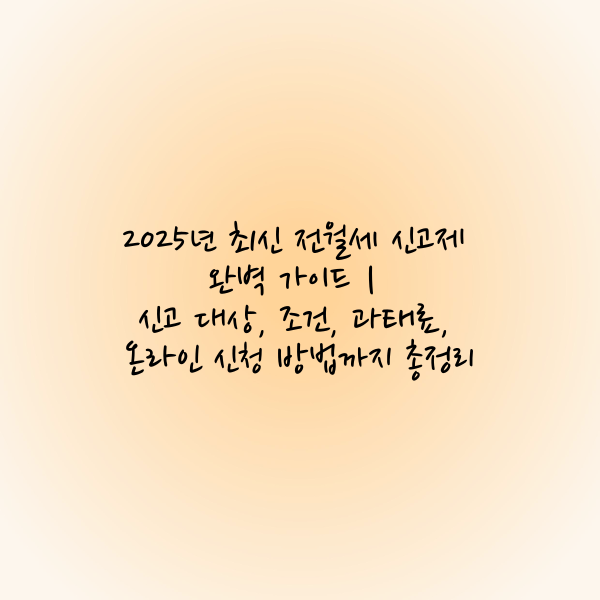 2025년 최신 전월세 신고제
완벽 가이드 |
신고 대상, 조건, 과태료,
온라인 신청 방법까지 총정리